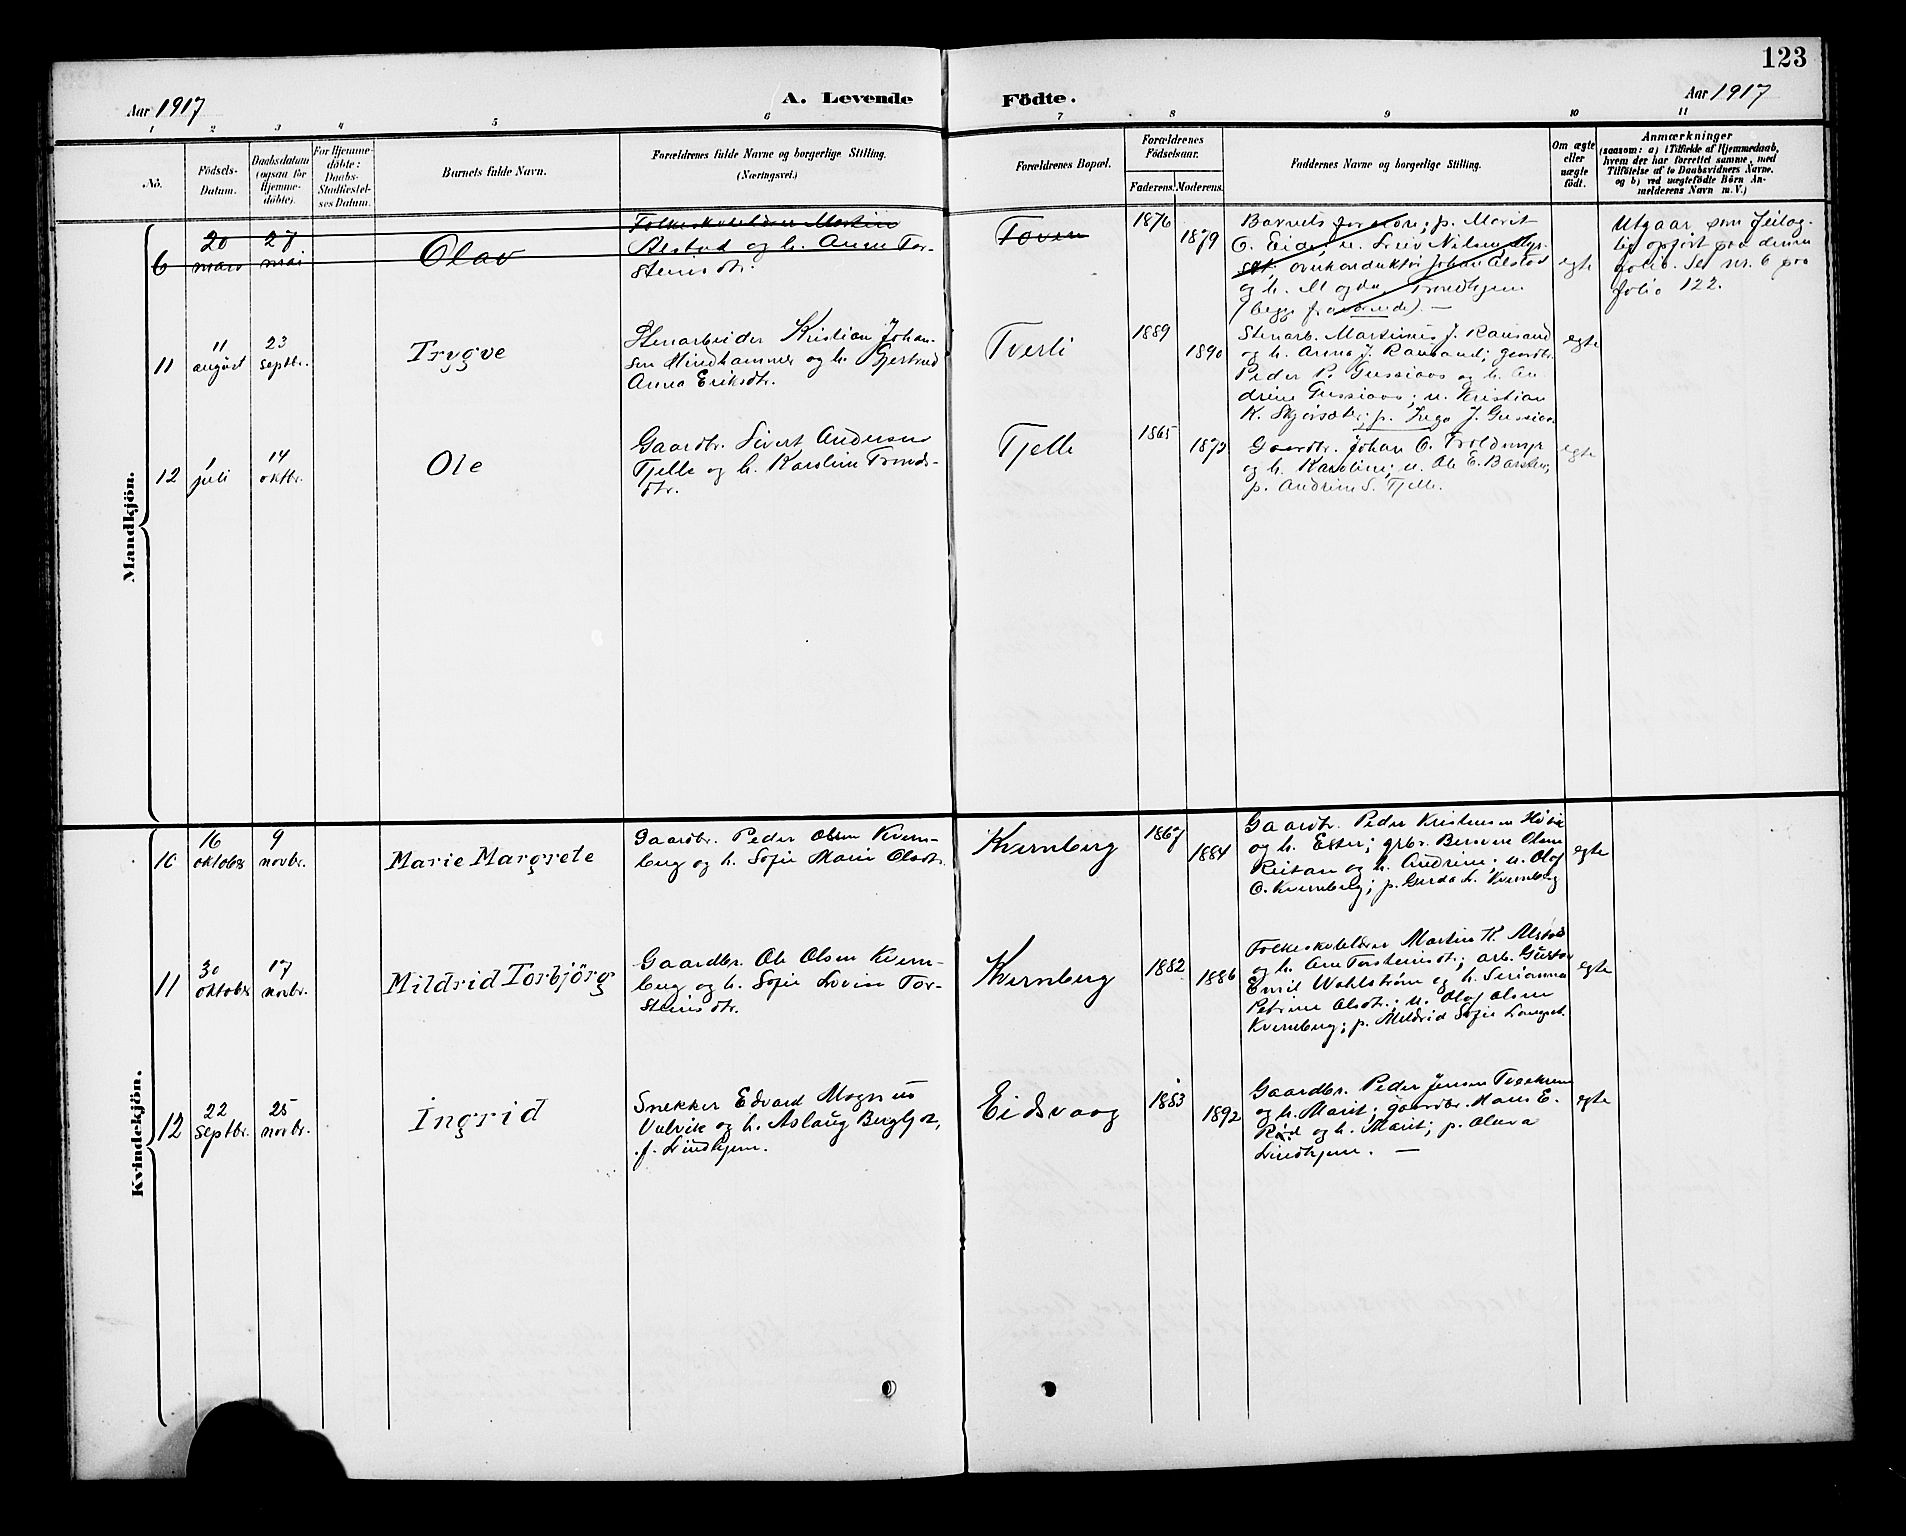 123
Aar 1917
A. Levende
Födte.
Aar 1917
1 2 3 4 5 6 7 8 9 10 11
No.
Födsels-
Datum.
Daabsdatum
(ogsaa for
Hjemme-
döbte).
For Hjemme-
döbte:
Daabs-
Stadfæstel-
ses Datum.
Barnets fulde Navn.
Forældrenes fulde Navne og borgerlige Stilling.
(Næringsvei.)
Forældrenes Bopæl.
Forældrenes
Födselsaar.
Faderens. Moderens.
Faddernes Navne og borgerlige Stilling.
Om ægte
eller
uægte
födt.
Anmærkninger
(saasom: a) i Tilfælde af Hjemmedaab,
hvem der har forrettet samme, med
Tilföielse af to Daabsvidners Navne.
og b) ved uægtefödte Börn An-
melderens Navn m. V.)
Mandkjön.
6
20
mars
27
mai
Olav
Folkeskolelærer Martin
Alstad og h. Anne Tor-
steinsdtr.
Toven
1876
1879
Barnets forældre; p. Marit
O. Eide; u. Nilsen
overkonduktör Johan Alstad
og h. Magda, Trondhjem
egte
Utgaar som feilag-
tig opført paa denne
folio. Se nr. 6 paa
folio 122.
11
11
august
23
septbr.
Trygve
Stenarbeider Kristian Johan-
sen Hindhammer og h. Gjertrud
Anna Eriksdtr.
Tverli
1889
1890
Stenarb. Martinus J. Ransand
og h. Anna J. Ransand; gaardbr.
Peder P. Gussiaas og h. An-
drine Gussiaas; u. Kristian
K. Skjørsæter; p. Inga J. Gussiaas
egte
12
1
juli
14
oktbr.
Ole
Gaardbr. Sivert Andersen
Tjelle og h. Karoline Tronds-
dtr.
Tjelle
1865
1873
Gaardbr. Johan O. Troldmyr
og h. Karoline; u. Ole E.
p. Andrine S. Tjelle.
egte
Kvindekjön.
10
16
oktober
9
novbr.
Marie Margrete
Gaardbr. Peder Olsen Kvern-
berg og h. Sofie Marie Olsdtr.
Kvernberg
1867
1884
Gaardbr. Peder Kristensen
og h. Ester; grbr. Olsen
Reitan og h. Andrine; u. Olaf
O. Kvernberg; p. Gerda h. Kvernberg
egte
11
30
oktober
17
novbr.
Mildrid Torbjörg
Gaardbr. Ole Olsen Kvern-
berg og h. Sofie Lovise Tor-
steinsdtr.
Kvernberg
1882
1886
Folkeskolelærer Martin K. Alstad
og h. Ane Torsteinsdtr.; arb. Gustav
Emil Wahlstrøm og h. Serianna
Petrine Olsdtr.; u. Olaf Olsen
Kvernberg; p. Mildrid Sofie Langset.
egte
12
22
septbr.
25
novbr.
Ingrid
Snekker Edvard Magnus
Vulvik og h. Aslaug Bergljot,
f. Lindhjem.
Eidsvaag
1883
1892
Gaardbr. Peder Jensen
og h. Marit; gaardbr. Hans E.
Rød og h. Marit; p. Olava
Lindhjem. —
egte